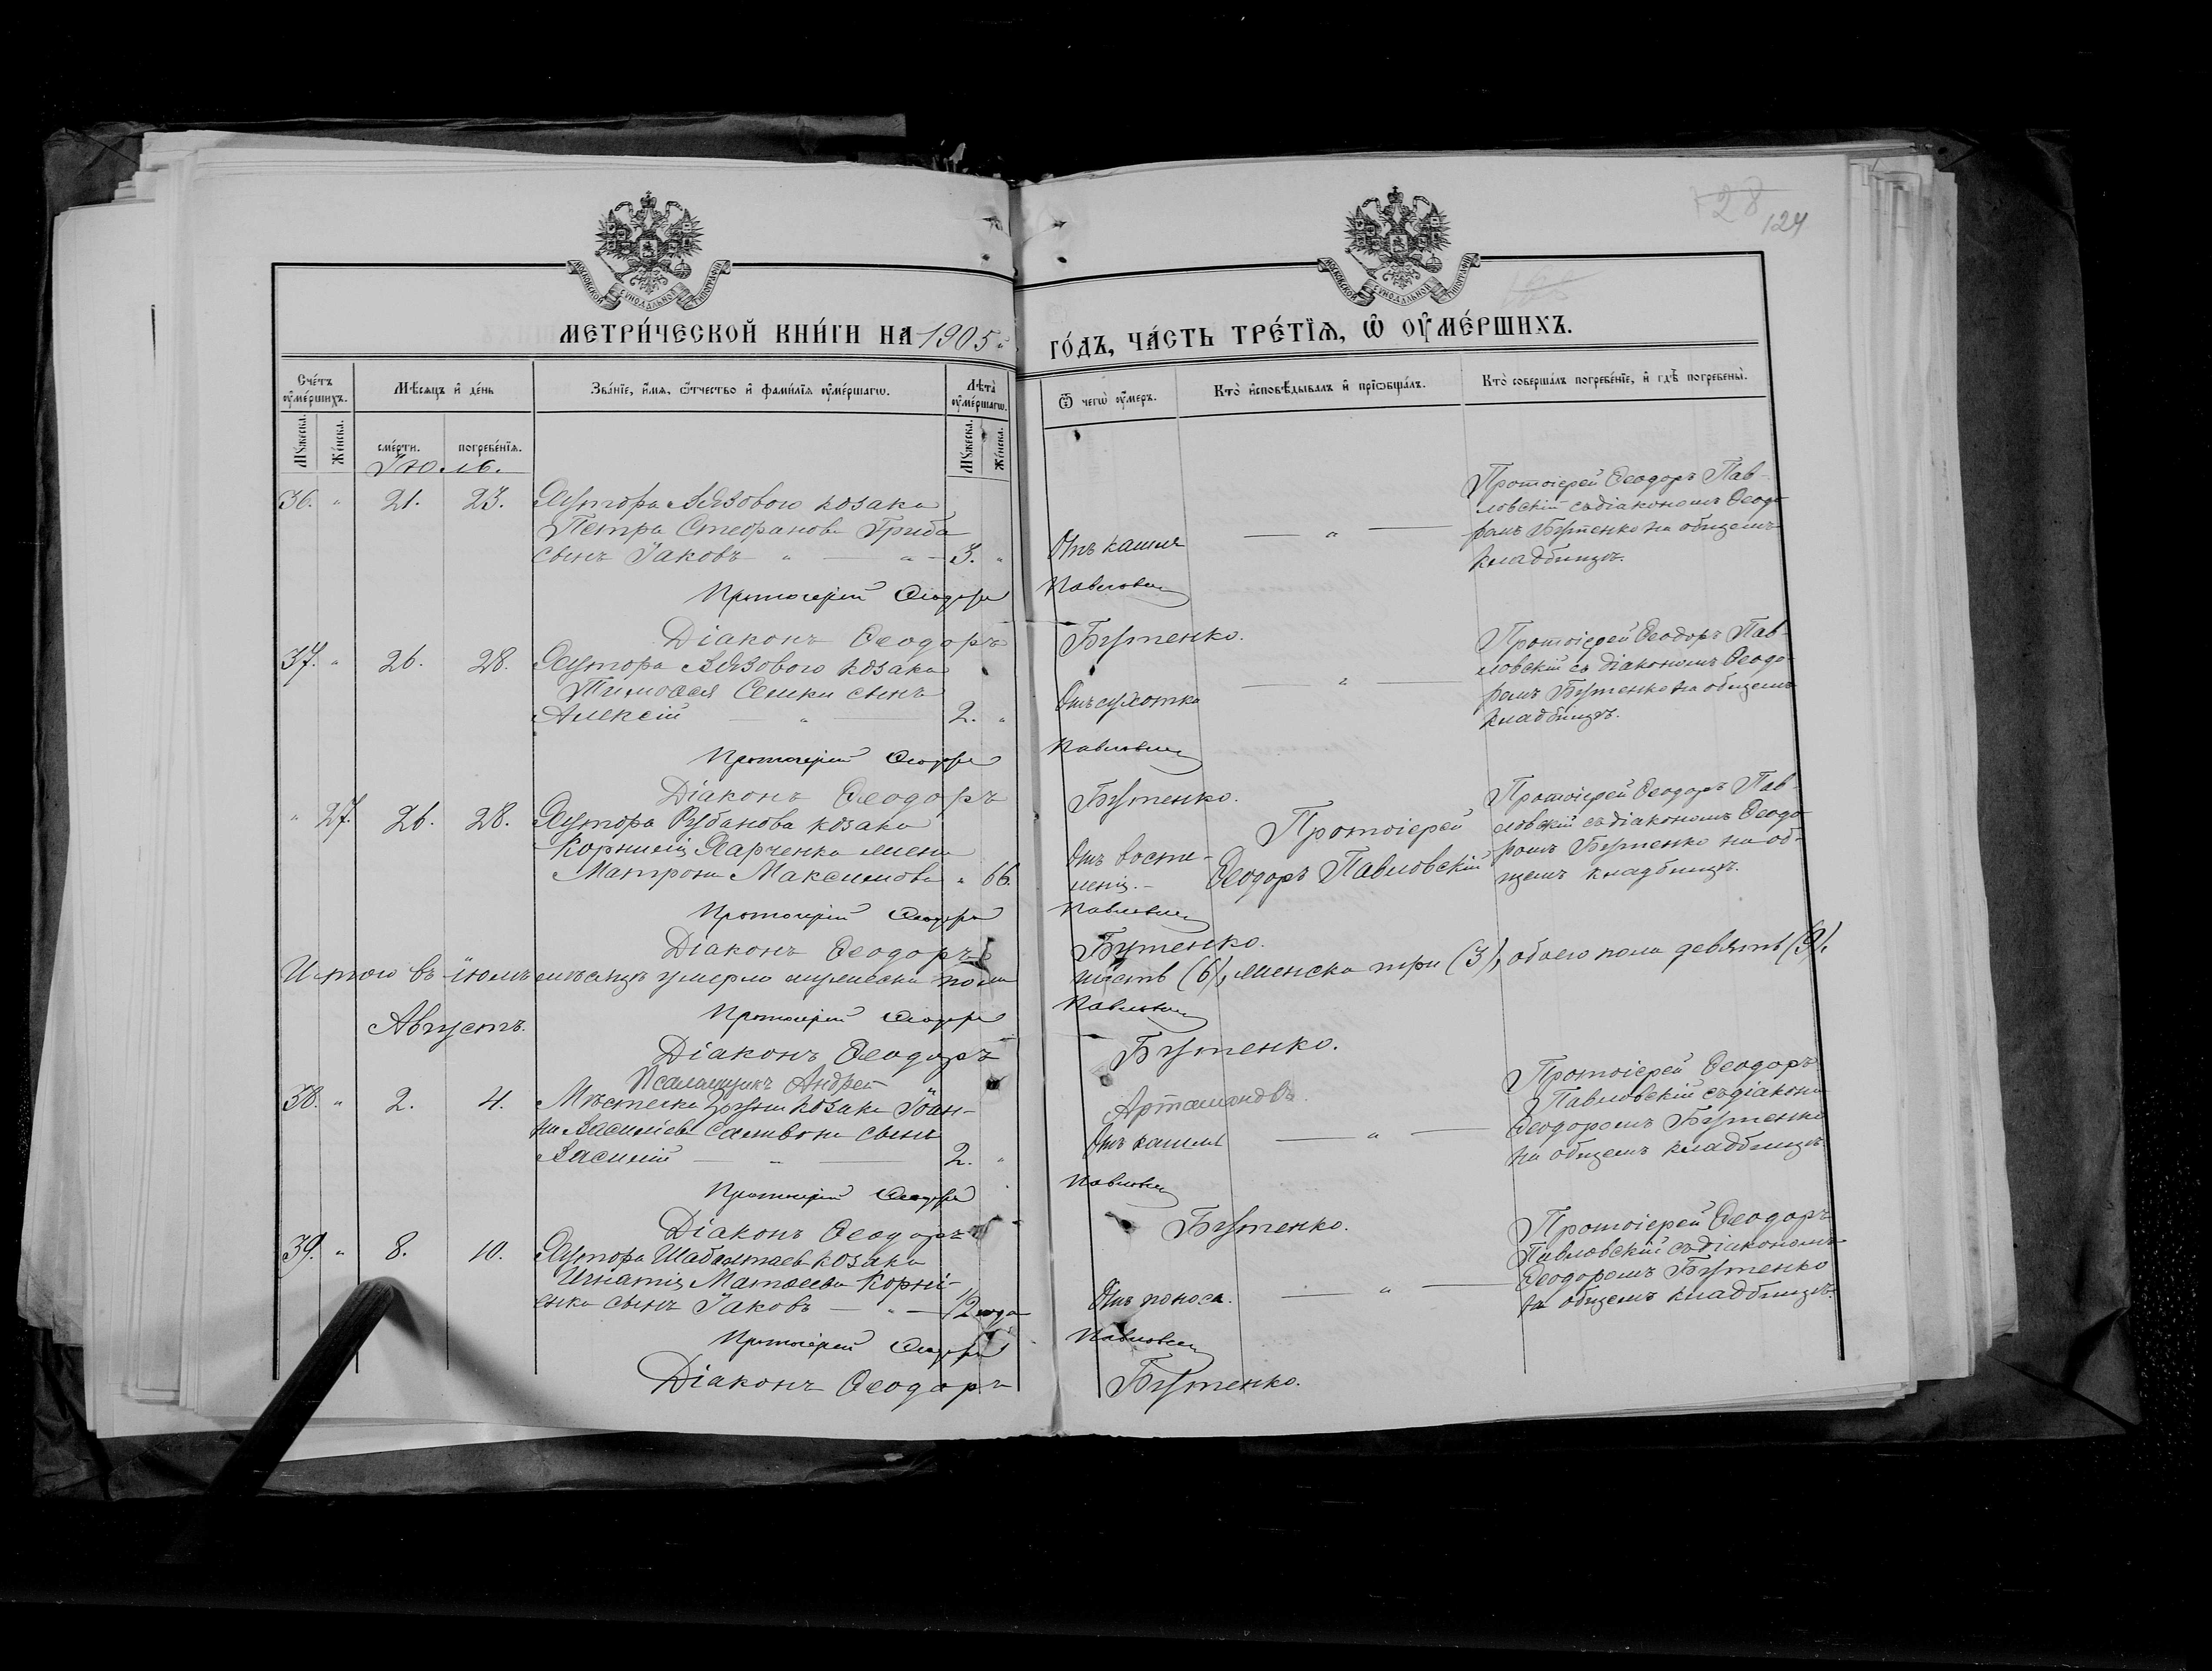 128
124
МОСКОВСКОЙ СѴНОДАЛЬНОЙ ТИПОГРАФІИ
МОСКОВСКОЙ СѴНОДАЛЬНОЙ ТИПОГРАФІИ
МЕТРИ́ЧЕСКОЙ КНИ́ГИ НА 1905 й
ГО́ДЪ, ЧА́СТЬ ТРЕ́ТЇѦ, Ѡ҆ ОУ҆МЕ́РШИХЪ.
Сче́тъ оу҆ме́ршихъ.
Мѣ́сяцъ и҆ де́нь
Зва́нїе, и҆́мя, ѻ҆́тчество и҆ фамн́лїя оу҆ме́ршагѡ.
Лѣта̀ оу҆ме́ршагѡ.
Ѿ чегѡ̀ оу҆́меръ.
Кто̀ и҆сповѣ́дывалъ и҆ прїѡбща́лъ.
Кто̀ соверша́лъ погребе́нїе, и҆ гдѣ̀ погребены̀.
Мꙋ́жеска.
Же́нска.
сме́рти.
погребе́нїя.
Мꙋ́жеска.
Же́нска.
Іюль.
36. " 21. 23. Хутора Вязового козака
Петра Стефанова Гриба
сынъ Іаковъ " " 3. "
Отъ кашля — " —
Протоіерей Ѳеодоръ Пав-
ловскій съ діакономъ Ѳеодо-
ромъ Бутенко на общемъ
кладбищѣ.
Протоіерей Ѳеодоръ Павловскій
Діаконъ Ѳеодоръ Бутенко.
37. " 26. 28. Хутора Вязового козака
Тимоѳея Семки сынъ
Алексій — " 2. "
Отъ сухотки — " —
Протоіерей Ѳеодоръ Пав-
ловскій съ діакономъ Ѳеодо-
ромъ Бутенко на общемъ
кладбищѣ.
Протоіерей Ѳеодоръ Павловскій
Діаконъ Ѳеодоръ Бутенко.
" 27. 26. 28. Хутора Рубанова козака
Корнилія Харченка жена
Матрона Максимова " 66.
Отъ воспа-
ленія. —
Протоіерей
Ѳеодоръ Павловскій
Протоіерей Ѳеодоръ Пав-
ловскій съ діакономъ Ѳеодо-
ромъ Бутенко на об-
щемъ кладбищѣ.
Протоіерей Ѳеодоръ Павловскій
Діаконъ Ѳеодоръ Бутенко.
Итого въ іюлѣ мѣсяцѣ умерло мужеска пола шесть (6), женска три (3), обоего пола девять (9).
Протоіерей Ѳеодоръ Павловскій
Августъ.
Діаконъ Ѳеодоръ Бутенко.
Псаломщикъ Андрей Артамоновъ.
38. " 2. 4. Мѣстечка козака Іоан-
на Васильева сынъ
Василій — " 2. "
Отъ кашля — " —
Протоіерей Ѳеодоръ
Павловскій съ діакономъ
Ѳеодоромъ Бутенко
на общемъ кладбищѣ.
Протоіерей Ѳеодоръ Павловскій
Діаконъ Ѳеодоръ Бутенко.
39. " 8. 10. Хутора козака
Игнатія Матѳеева Корні-
енка сынъ Іаковъ — " — 1/2 года
Отъ поноса. — " —
Протоіерей Ѳеодоръ
Павловскій съ діакономъ
Ѳеодоромъ Бутенко
на общемъ кладбищѣ.
Протоіерей Ѳеодоръ Павловскій
Діаконъ Ѳеодоръ Бутенко.